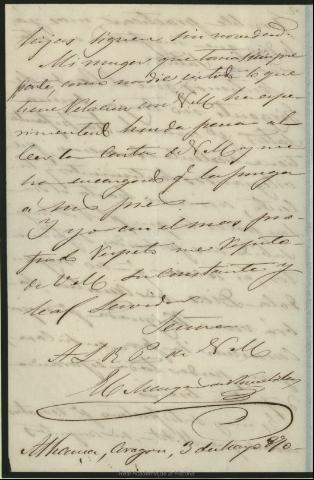 hijos siguen sin novedad.
Mi muger que toma siempre
parte, como nadie en todo lo que
tiene relacion con V.M. ha espe-
rimentado honda pena al
leer la Carta de V.M. y me
ha encargado q.e la ponga
á sus pies.—
Y yo con el mas pro-
fundo respeto me repito
de V.M. su constante y
leal servidor
Señora
A L R P de V.M.
El Marques de
Alhama, Aragon, 3 de Mayo 870-
REAL ACADEMIA DE LA HISTORIA